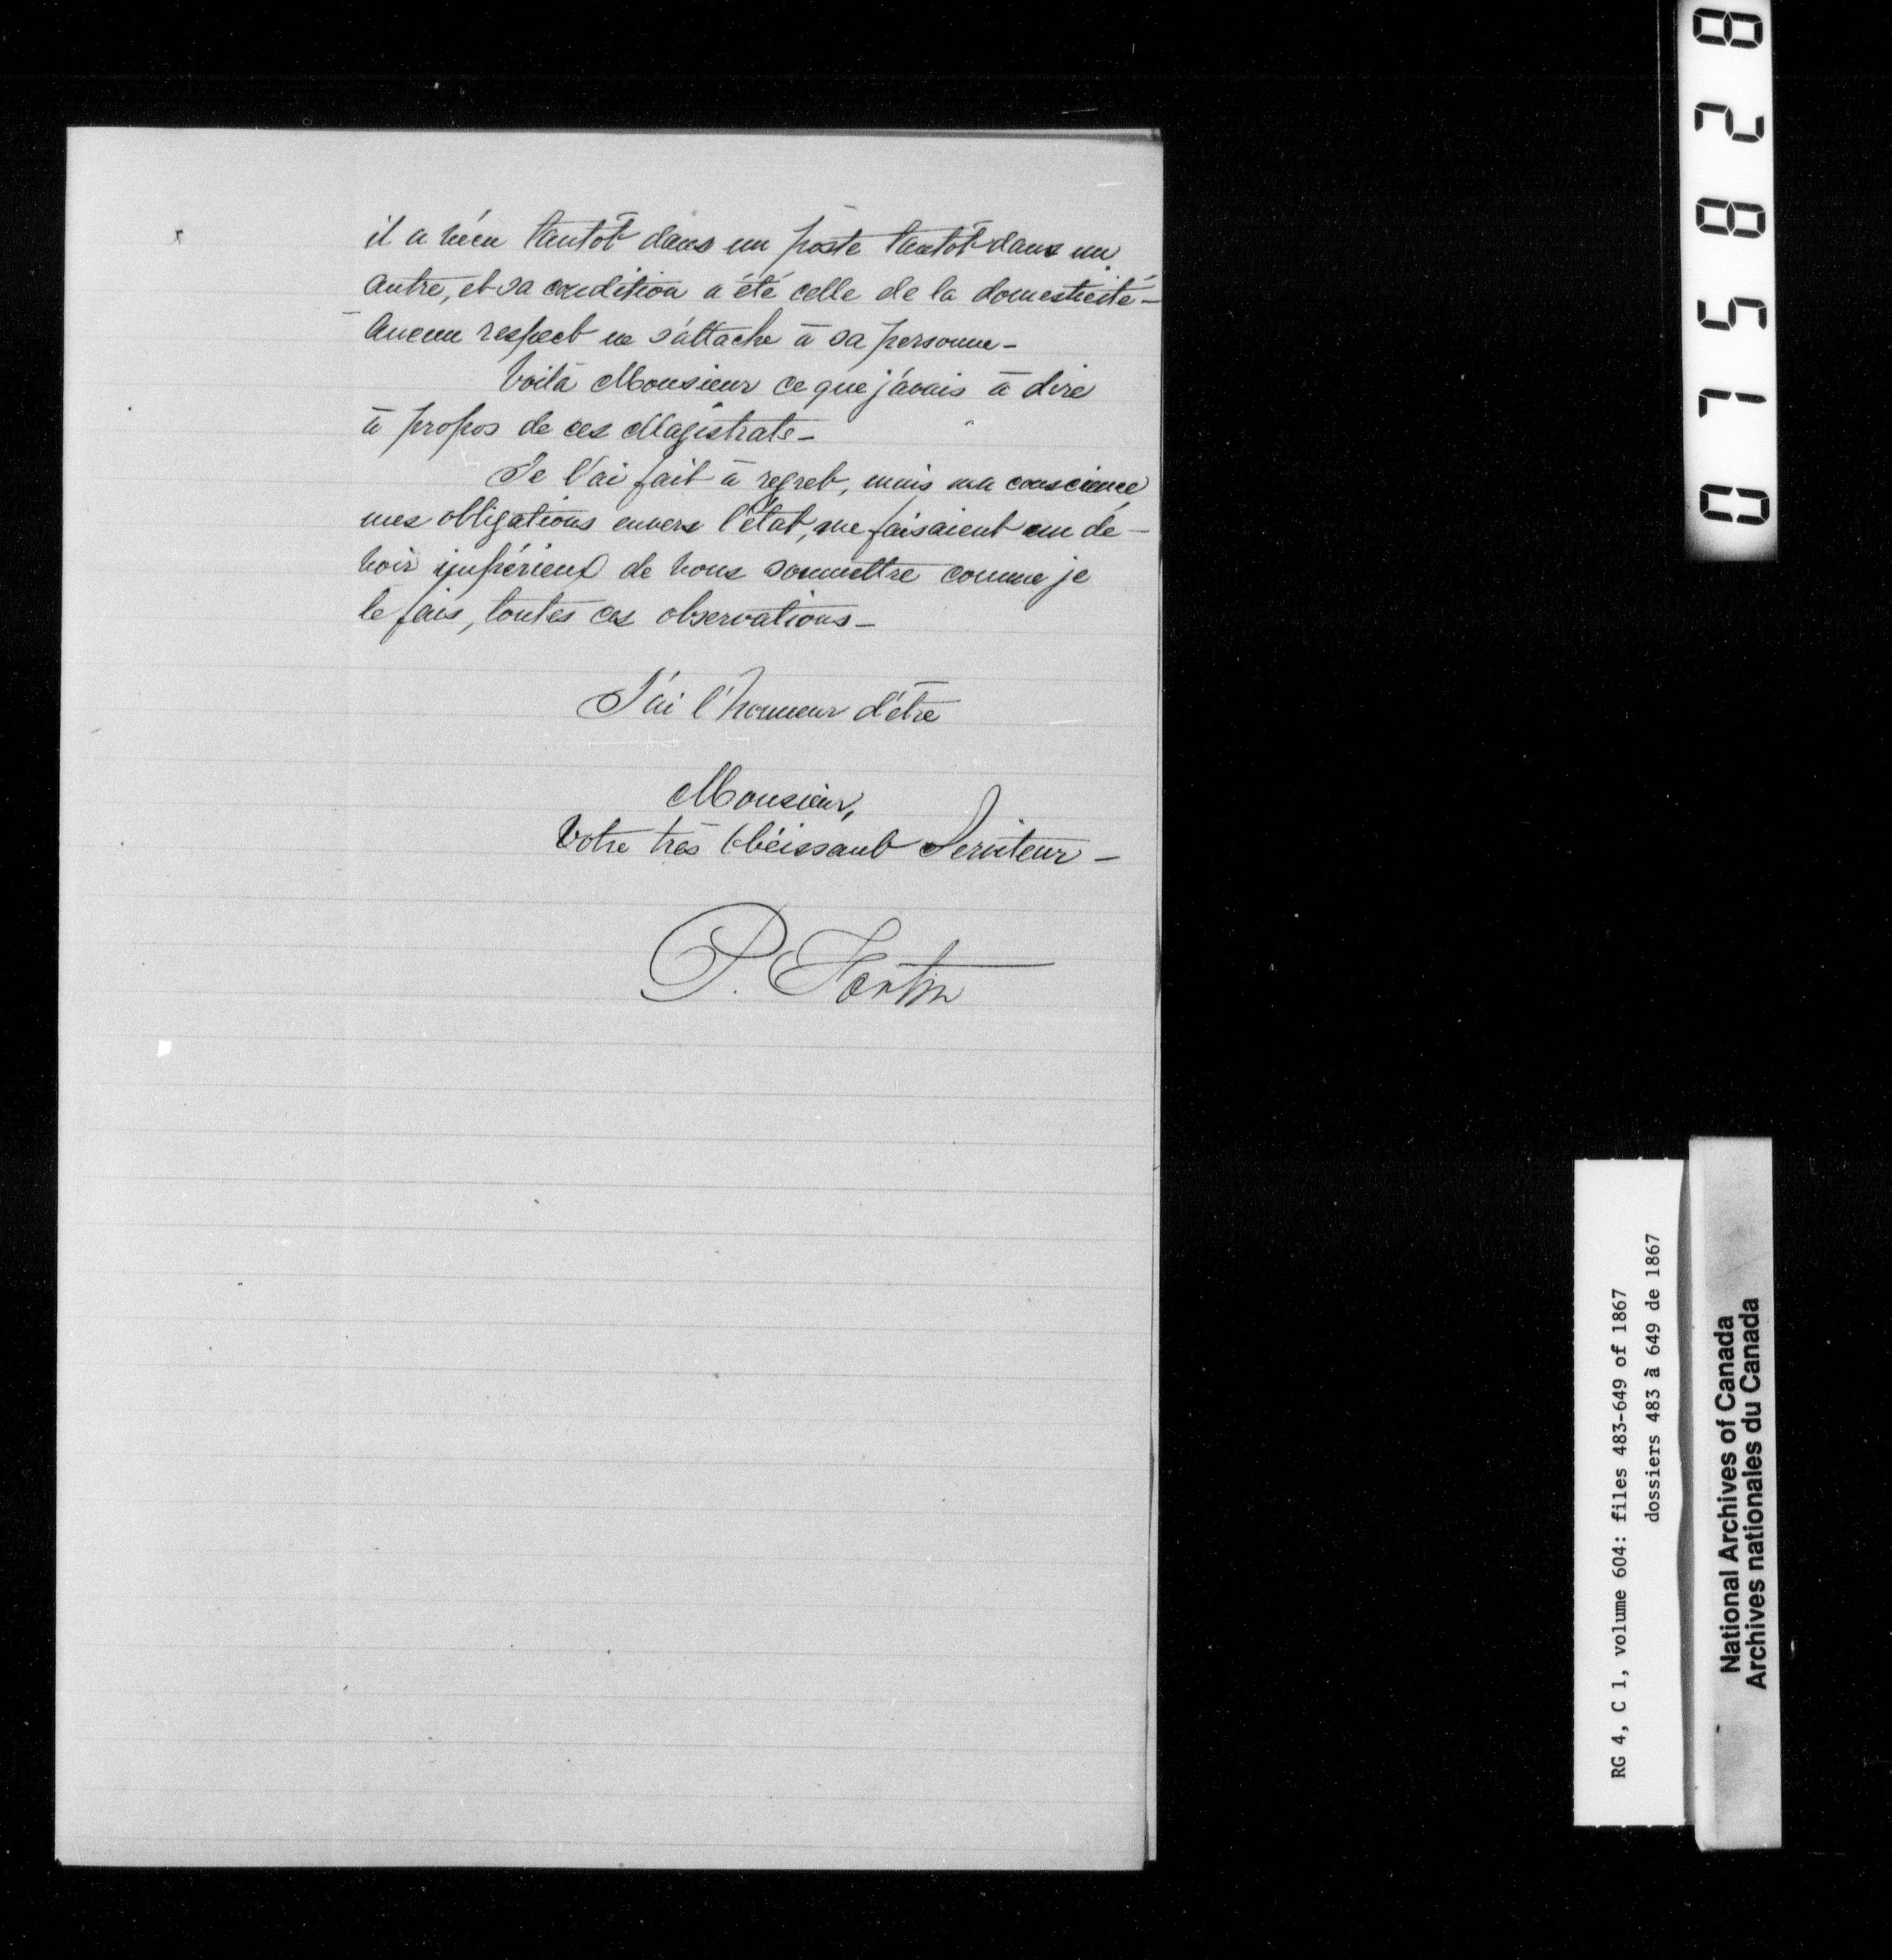 il a vécu tantôt dans un poste tantôt dans un
autre, et sa condition a été celle de la domesticité -
Aucun respect ne s'attache à sa personne -
Voilà Monsieur ce que j'avais à dire
à propos de ces Magistrats -
Je l'ai fait à regret, mais ma conscience
mes obligations envers l'état, me faisaient un de-
voir impérieux de vous soumettre comme je
le fais, toutes ces observations -
J'ai l'honneur d'être
Monsieur,
Votre très Obéissant Serviteur -
P. Fortin
015828
RG 4, C 1, volume 604: files 483-649 of 1867
dossiers 483 à 649 de 1867
National Archives of Canada
Archives nationales du Canada